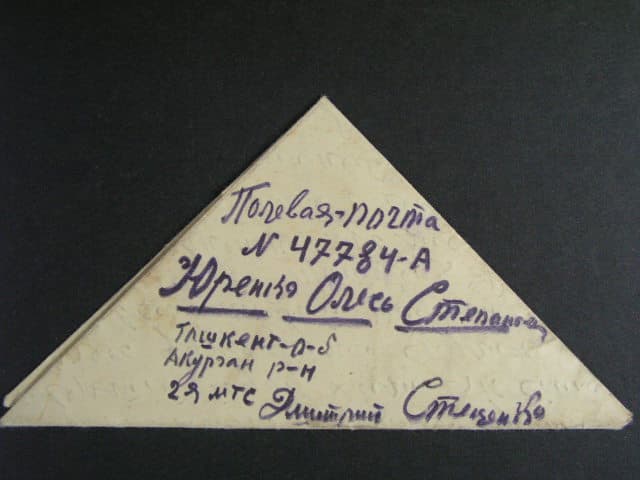 Полевая-почта
N 47784-А
Юренко Олесь Степанов
Ташкент-о-б
Акурган р-н
2я мтс Дмитрий Стеценко